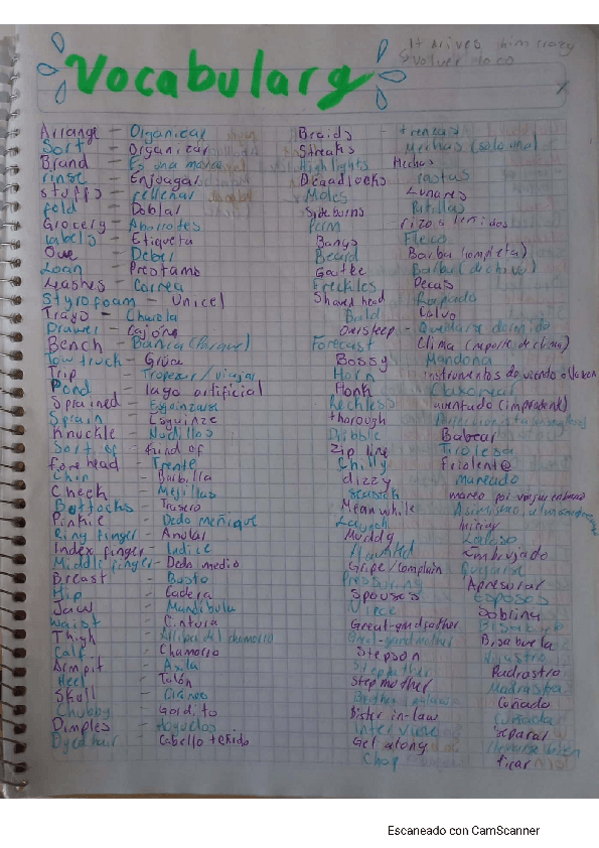 It drives him crazy
Volver loco
Vocabulary
Arrange - Organizar
Sort - Organizar
Brand - Es una marca
rinse - Enjougar
stuffs - rellenar
fold - Doblar
Grocery - Abarrotes
labels - Etiqueta
Owe - Deber
Loan - Prestamo
Leashes - Correa
Styrofoam - Unicel
Trays - Charola
Drawer - Cajone
Bench - Banca (Parque)
Tow truck - Grúa
Trip - Tropezar / viajar
Pond - lago artificial
Sprained - Esguinzarse
Sprain - Esguinze
Knuckle - Nudillos
Sort of - kind of
forehead - Frente
Chin - Barbilla
Cheek - Mejillas
Buttocks - Trasero
Pinkie - Dedo meñique
Ring finger - Anular
Index finger - Indice
Middle finger - Dedo medio
Breast - Busto
Hip - Cadera
Jaw - Mandibula
Waist - Cintura
Thigh - Arriba del chamorro
Calf - Chamorro
Armpit - Axla
Heel - Talón
Skull - Cráneo
Chubby - Gordito
Dimples - Hoyuelos
Dyed hair - Cabello teñido
Braids - trenzas
Streaks - Mechas (solo una)
Highlights Mechas
Deadlocks rastas
Moles Lunares
Sideburns Patillas
Perm rizos
Bangs Fleco
Beard Barba (completa)
Goatee Barba (de chivo)
Freckles Pecas
Shaved head Rapado
Bald Calvo
Oversleep - Quedarse dormido
Forecast Clima (reporte de clima)
Bossy Mandona
Horn instrumentos de viendo
Honk Claxonear
Reckless (imprudente)
thorough
Dribble Babear
Zip line Tirolesa
Chilly Friolent@
dizzy mareado
seasick mareo por viajar en barco
Meanwhile
Launch Iniciar
Muddy Lodoso
Haunted Embrujado
Gripe/complain Quejarse
Pressuring Apresurar
Spouses Esposos
Niece Sobrina
Great-grandfather Bisabuelo
Great-grandmother Bisabuela
Stepson Hijastro
Stepfather Padrastro
Stepmother Madrastra
Brother in law Cuñado
Sister in-law Cuñada
Interview
Get along
Chop Picar
Escaneado con CamScanner